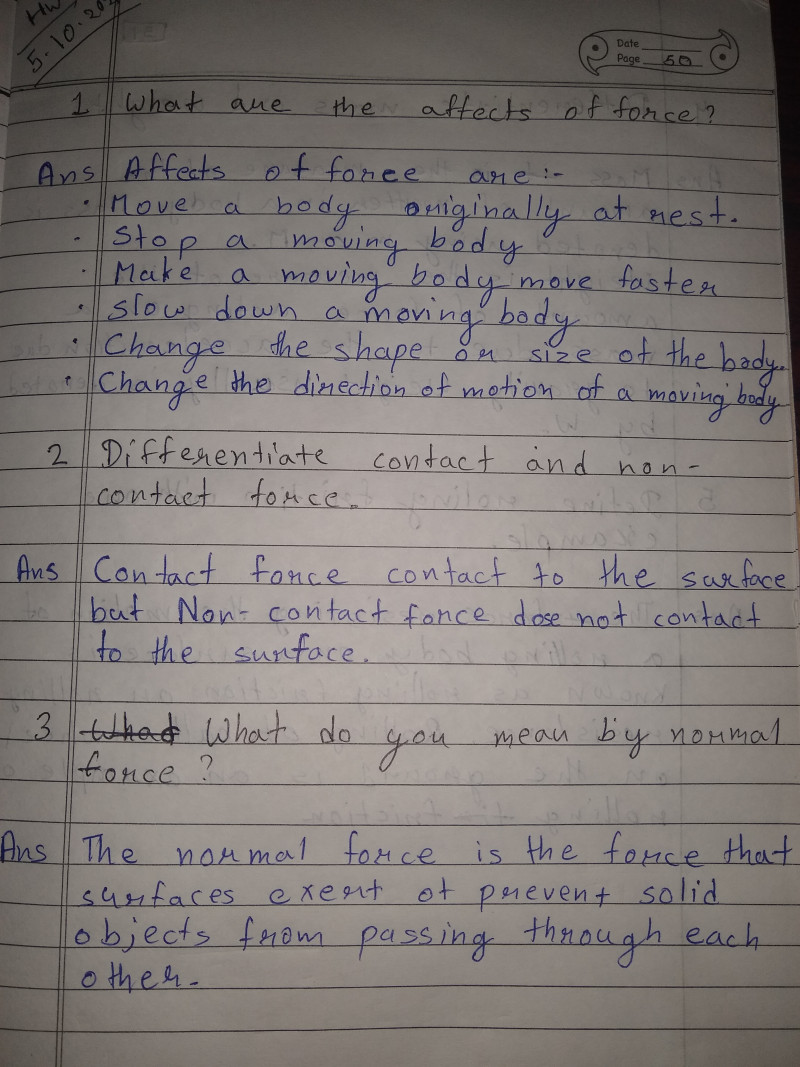 HW
5.10.202
Date
Page 50
1 What are the affects of force?
Ans Affects of force are :-
· Move a body originally at rest.
· Stop a moving body
· Make a moving body move faster
· slow down a moving body
· Change the shape or size of the body.
· Change the direction of motion of a moving body
2 Differentiate contact and non-
contact force.
Ans Contact force contact to the surface
but Non-contact force dose not contact
to the surface.
3 What What do you mean by normal
force ?
Ans The normal force is the force that
surfaces exert ot prevent solid
objects from passing through each
other.